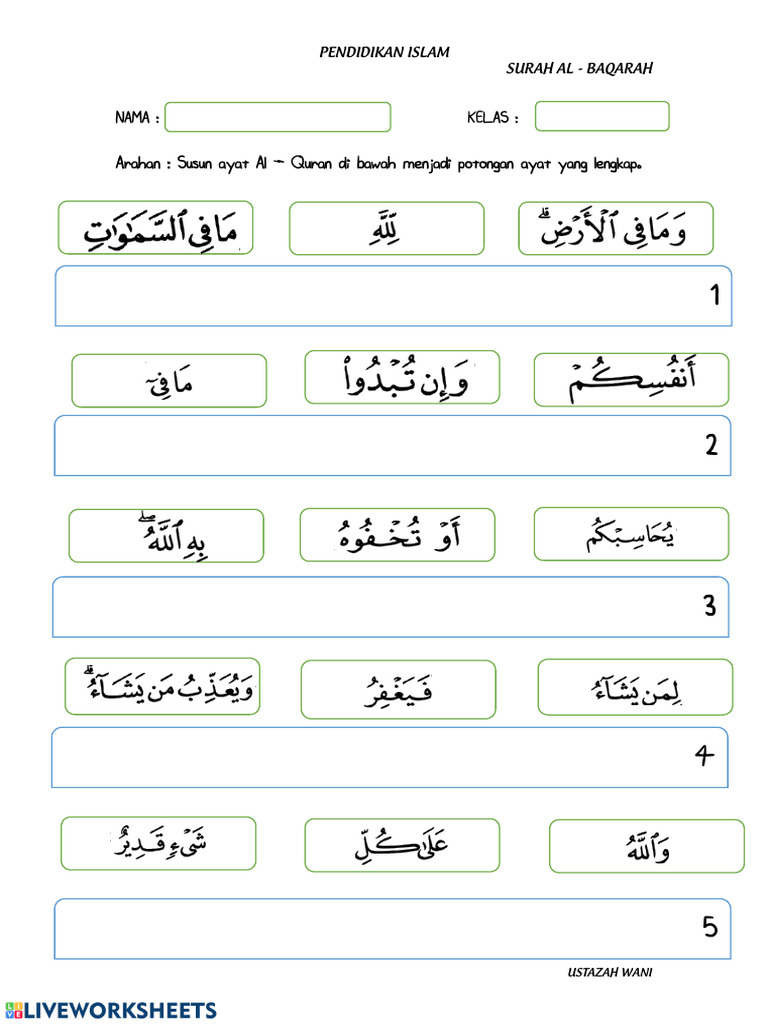 PENDIDIKAN ISLAM
SURAH AL - BAQARAH
NAMA : KELAS :
Arahan : Susun ayat Al - Quran di bawah menjadi potongan ayat yang lengkap.
وَمَا فِي ٱلْأَرْضِۗ لِّلَّهِ مَا فِي ٱلسَّمَٰوَٰتِ
1
أَنفُسِكُمْ وَإِن تُبْدُوا۟ مَا فِيٓ
2
يُحَاسِبْكُم أَوْ تُخْفُوهُ بِهِ ٱللَّهُۖ
3
لِمَن يَشَآءُ فَيَغْفِرُ وَيُعَذِّبُ مَن يَشَآءُۗ
4
وَٱللَّهُ عَلَىٰ كُلِّ شَىْءٍ قَدِيرٌ
5
USTAZAH WANI
LIVE LIVEWORKSHEETS